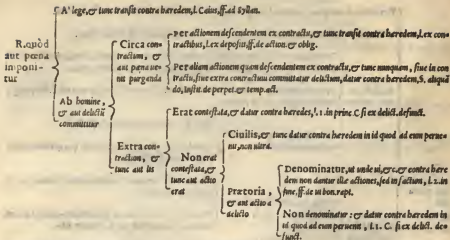 A' lege, & tunc transit contra hæredem, l. Caius, ff. ad Syllan.
R. quòd aut pœna imponitur
Ab homine, & aut delictũ committitur
Circa contractum, & aut pœna venit purganda
Per actionem descendentem ex contractu, & tunc transit contra hæredem, l. ex contractibus, l. ex depositi, ff. de action. & oblig.
Per aliam actionem quam descendentem ex contractu, & tunc nunquam, siue in contractu, siue extra contractum committatur delictum, datur contra hæredem, S. aliquãdo, Instit. de perpet. & temp. act.
Extra contractum, & tunc aut lis
Erat contestata, & datur contra hæredes, l. 1. in princ. C. si ex delict. defunct.
Non erat contestata, & tunc aut actio erat
Ciuilis, & tunc datur contra hæredem in id quod ad eum peruenit, non vltra.
Prætoria, & aut actio à delicto
Denominatur, ut unde ui, &c, & contra hæredem non dantur illæ actiones, sed in factum, l. 2. in fine, ff. de ui bon. rapt.
Non denominatur: & datur contra hæredem in id quod ad eum peruenit, l. 1. C. si ex delict. defunct.